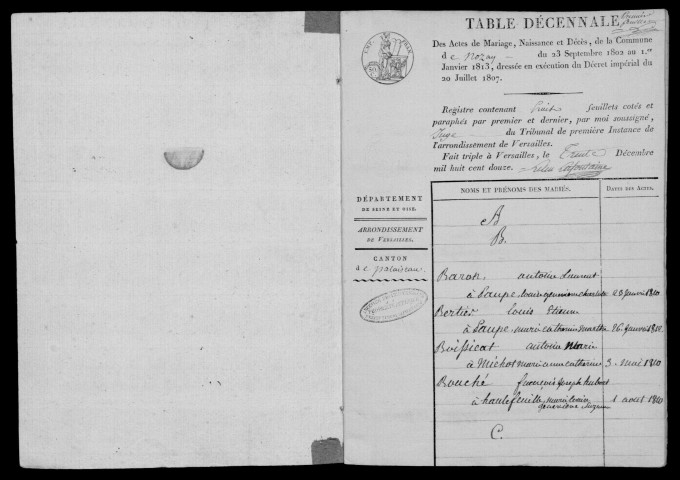 TABLE DÉCENNALE
Des Actes de Mariage, Naissance et Décès, de la Commune
de Nozay du 23 Septembre 1802 au 1.er
Janvier 1813, dressée en exécution du Décret impérial du
20 Juillet 1807.
Registre contenant huit feuillets cotés et
paraphés par premier et dernier, par moi soussigné,
Juge du Tribunal de première Instance de
l'arrondissement de Versailles.
Fait triple à Versailles, le Trente Décembre
mil huit cent douze.
DÉPARTEMENT
DE SEINE ET OISE.
ARRONDISSEMENT
DE VERSAILLES.
CANTON
de palaiseau.
NOMS ET PRÉNOMS DES MARIÉS.
DATES DES ACTES.
A
B.
Baron antoine Laurent
à Paupe 29 Janvier 1810
Bertier Louis Etienne
à Paupe marie catherine marthe 26 Janvier 1812
Boissicat antoine Marie
à Michot marie anne catherine 3 mai 1810
Bouché françois joseph hubert
à hautefeuille marie louise 1 aout 1810
geneviève Suzanne
C.